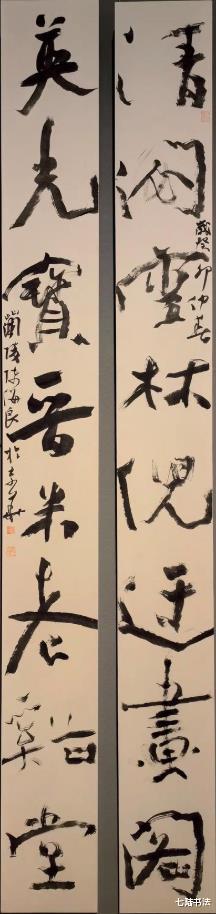 清閟雲林倪迂畫閣
歲癸卯仲春
英光寶晉米老谿堂
蘭陵陳海良於京華
七陆书法